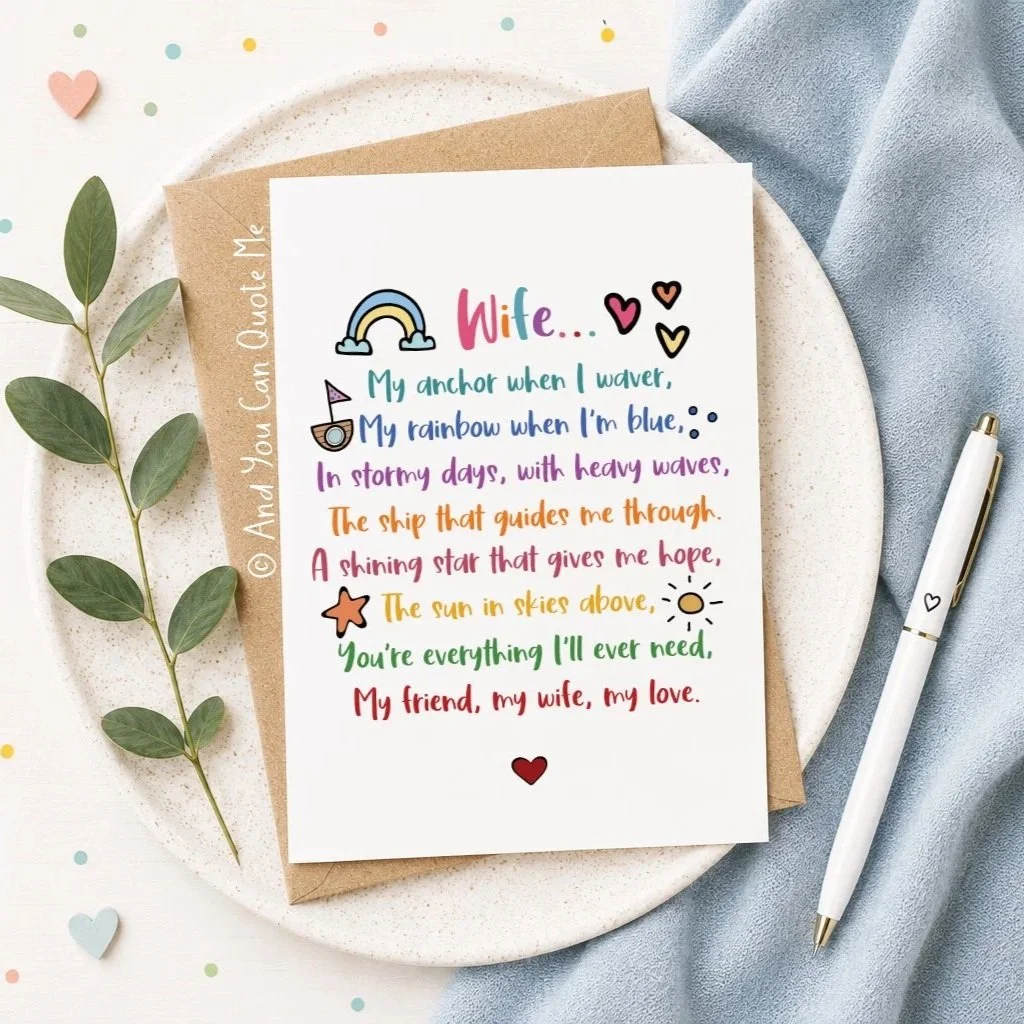 Wife...
My anchor when I waver,
My rainbow when I'm blue,
In stormy days, with heavy waves,
The ship that guides me through.
A shining star that gives me hope,
The sun in skies above,
You're everything I'll ever need,
My friend, my wife, my love.
© And You Can Quote Me